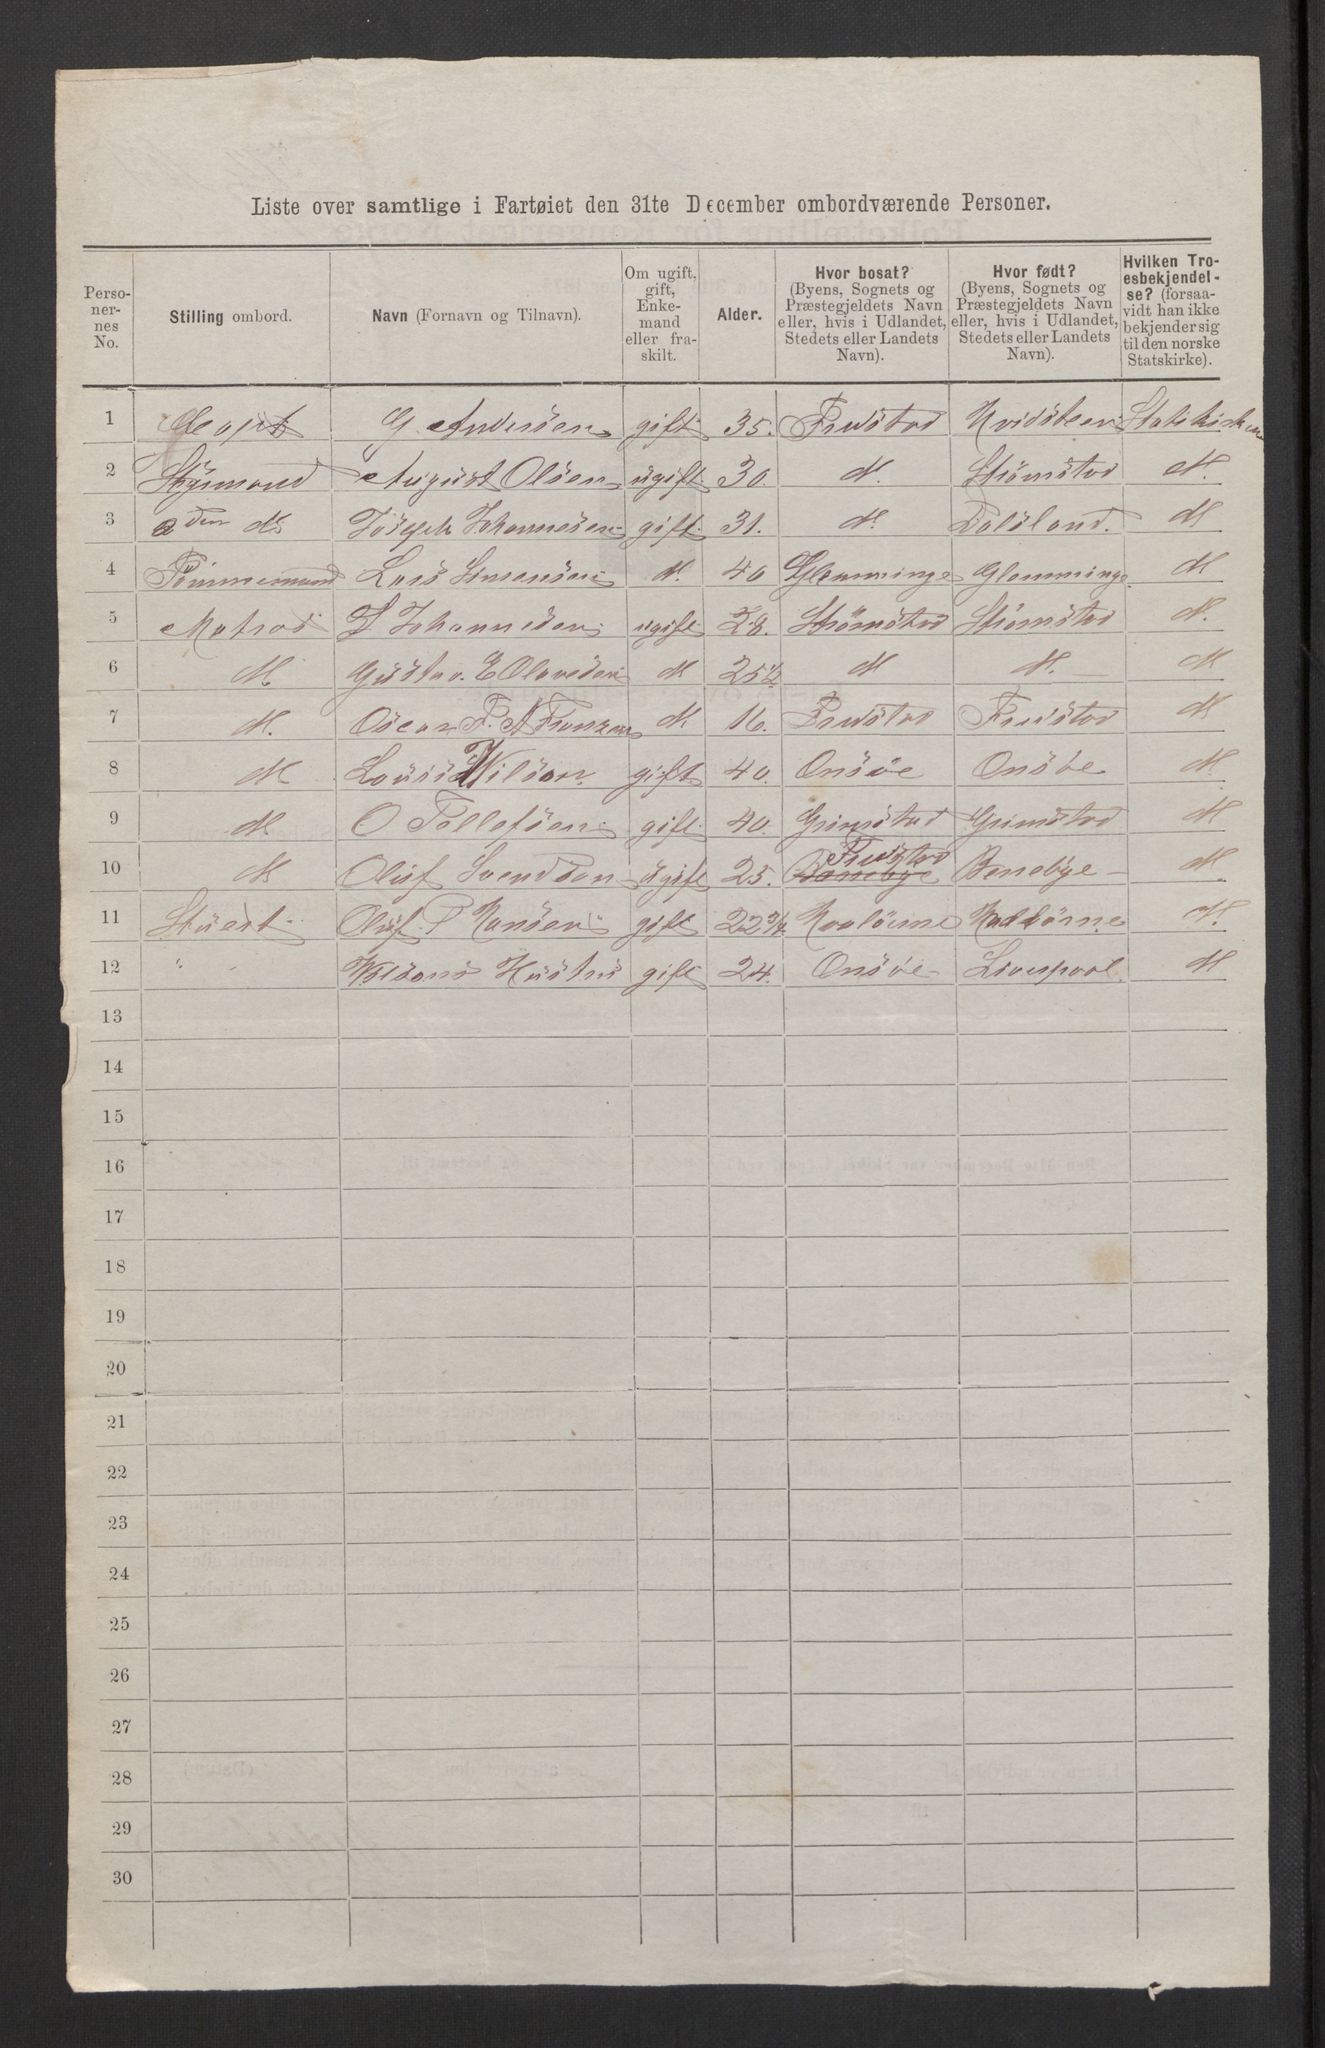 Liste over samtlige i Fartøiet den 31te December ombordværende Personer.
Personernes No. | Stilling ombord. | Navn (Fornavn og Tilnavn). | Om ugift, gift, Enkemand eller fraskilt. | Alder. | Hvor bosat? (Byens, Sognets og Præstegjeldets Navn eller, hvis i Udlandet, Stedets eller Landets Navn). | Hvor født? (Byens, Sognets og Præstegjeldets Navn eller, hvis i Udlandet, Stedets eller Landets Navn). | Hvilken Troesbekjendelse? (forsaavidt han ikke bekjender sig til den norske Statskirke).
1 | Capt | G Andersen | gift | 35. | Fredstad | Hvidsteen | Statskirken
2 | Styrmand | August Olsen | ugift | 30. | d. | Strømstad | d.
3 | 2den do | Joseph Johannesen | gift | 31. | d. | Dalsland. | d
4 | Tømmermand | Lars Simensen | d. | 40 | Glemminge | Glemminge | d
5 | Matros | L Johannesen | ugift | 28. | Strømstad | Strømstad | d.
6 | d. | Gustav. E Olavesen | d | 25 1/2 | d | d. | d
7 | d. | Oscar F. A Franzen | d | 16. | Fredstad | Fredstad | d
8 | d | Louis Wilson. | gift | 40. | Onsöe | Onsöe | d.
9 | d | O Tellefsen | gift | 40. | Grimstad | Grimstad | d
10 | d | Oluf Svendsen | ugift | 25. | Fredstad | | d.
11 | Stuert | Oluf. P Hansen | gift | 22 3/4 | | | d.
12 | " | Wilsons Hustru | gift | 24. | Onsöe | Liverpool | d
13
14
15
16
17
18
19
20
21
22
23
24
25
26
27
28
29
30